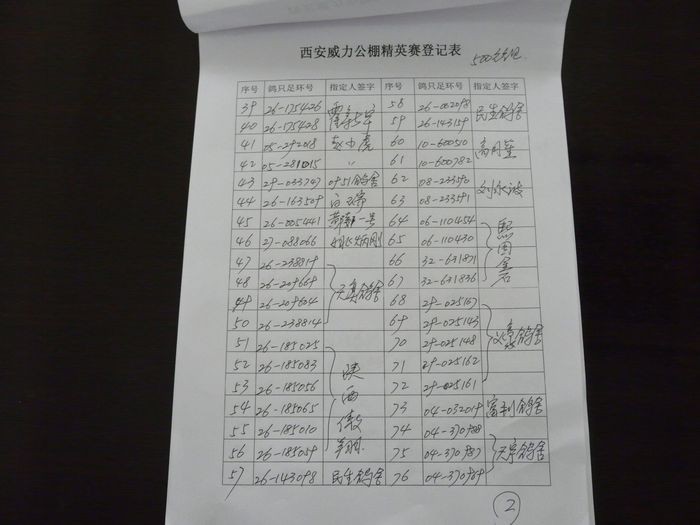 西安威力公棚精英赛登记表
序号 鸽只足环号 指定人签字 序号 鸽只足环号 指定人签字
39 26-175426 58 26-002098 民生鸽舍
40 26-175428 59 26-143159
41 05-292018 60 10-600510
42 05-281015 〃 61 10-600782
43 29-033747 0951鸽舍 62 08-233590 刘永波
44 26-163509 63 08-233591
45 26-005441 64 06-110454
46 27-088066 65 06-110430
47 26-238819 天真鸽舍 66 32-631871
48 26-209669 67 32-631836
49 26-209604 68 29-025167
50 26-238814 69 29-025143
51 26-185025 陕西傲翔 70 29-025148
52 26-185083 71 29-025162
53 26-185056 72 29-025161
54 26-185065 73 04-032019 富利鸽舍
55 26-185010 74 04-370988
56 26-185059 75 04-370987 天宇鸽舍
57 26-143098 民生鸽舍 76 04-370989
2